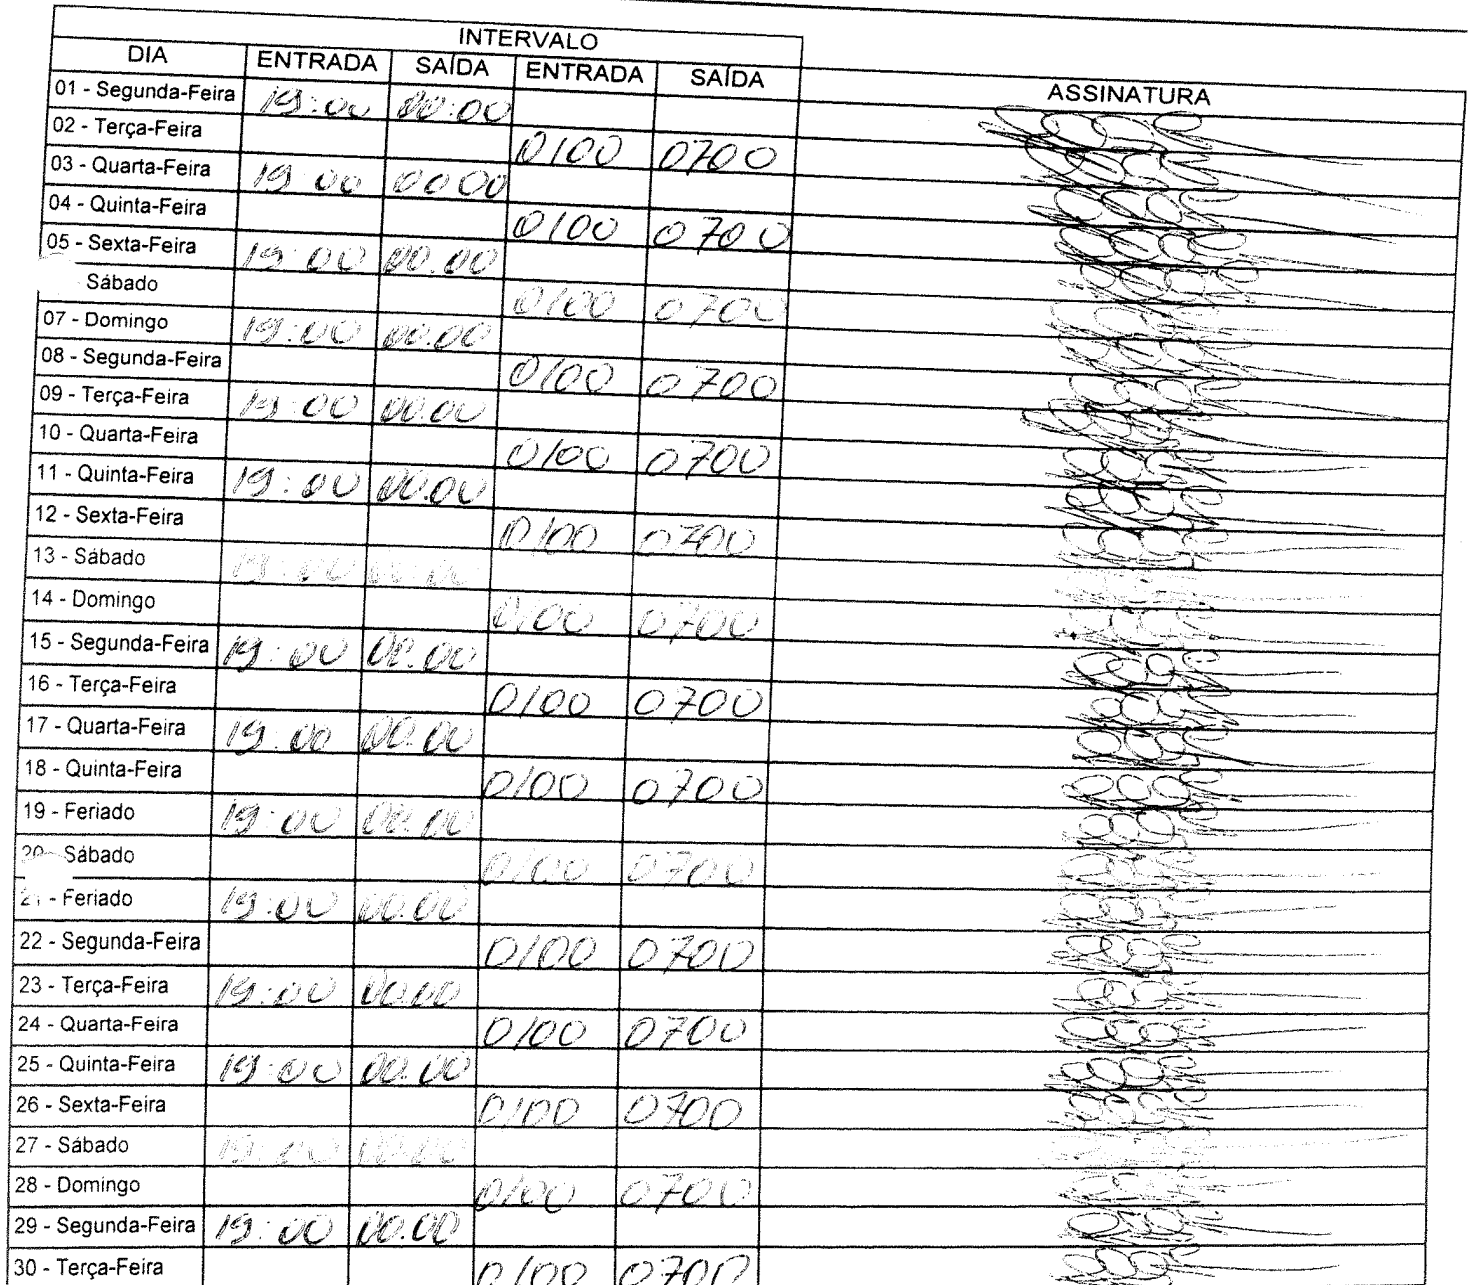 INTERVALO
DIA ENTRADA SAÍDA ENTRADA SAÍDA ASSINATURA
01 - Segunda-Feira 19:00 00:00
02 - Terça-Feira 0100 0700
03 - Quarta-Feira 19 00 00 00
04 - Quinta-Feira 0100 0700
05 - Sexta-Feira 19:00 00.00
Sábado 0100 0700
07 - Domingo 19:00 00.00
08 - Segunda-Feira 0100 0700
09 - Terça-Feira 19:00 00.00
10 - Quarta-Feira 0100 0700
11 - Quinta-Feira 19:00 00.00
12 - Sexta-Feira 0100 0700
13 - Sábado 19:00 00.00
14 - Domingo 0100 0700
15 - Segunda-Feira 19:00 00.00
16 - Terça-Feira 0100 0700
17 - Quarta-Feira 19:00 00.00
18 - Quinta-Feira 0100 0700
19 - Feriado 19:00 00.00
20 - Sábado 0100 0700
21 - Feriado 19:00 00.00
22 - Segunda-Feira 0100 0700
23 - Terça-Feira 19:00 00.00
24 - Quarta-Feira 0100 0700
25 - Quinta-Feira 19:00 00.00
26 - Sexta-Feira 0100 0700
27 - Sábado 19:00 00.00
28 - Domingo 0100 0700
29 - Segunda-Feira 19:00 00.00
30 - Terça-Feira 0100 0700